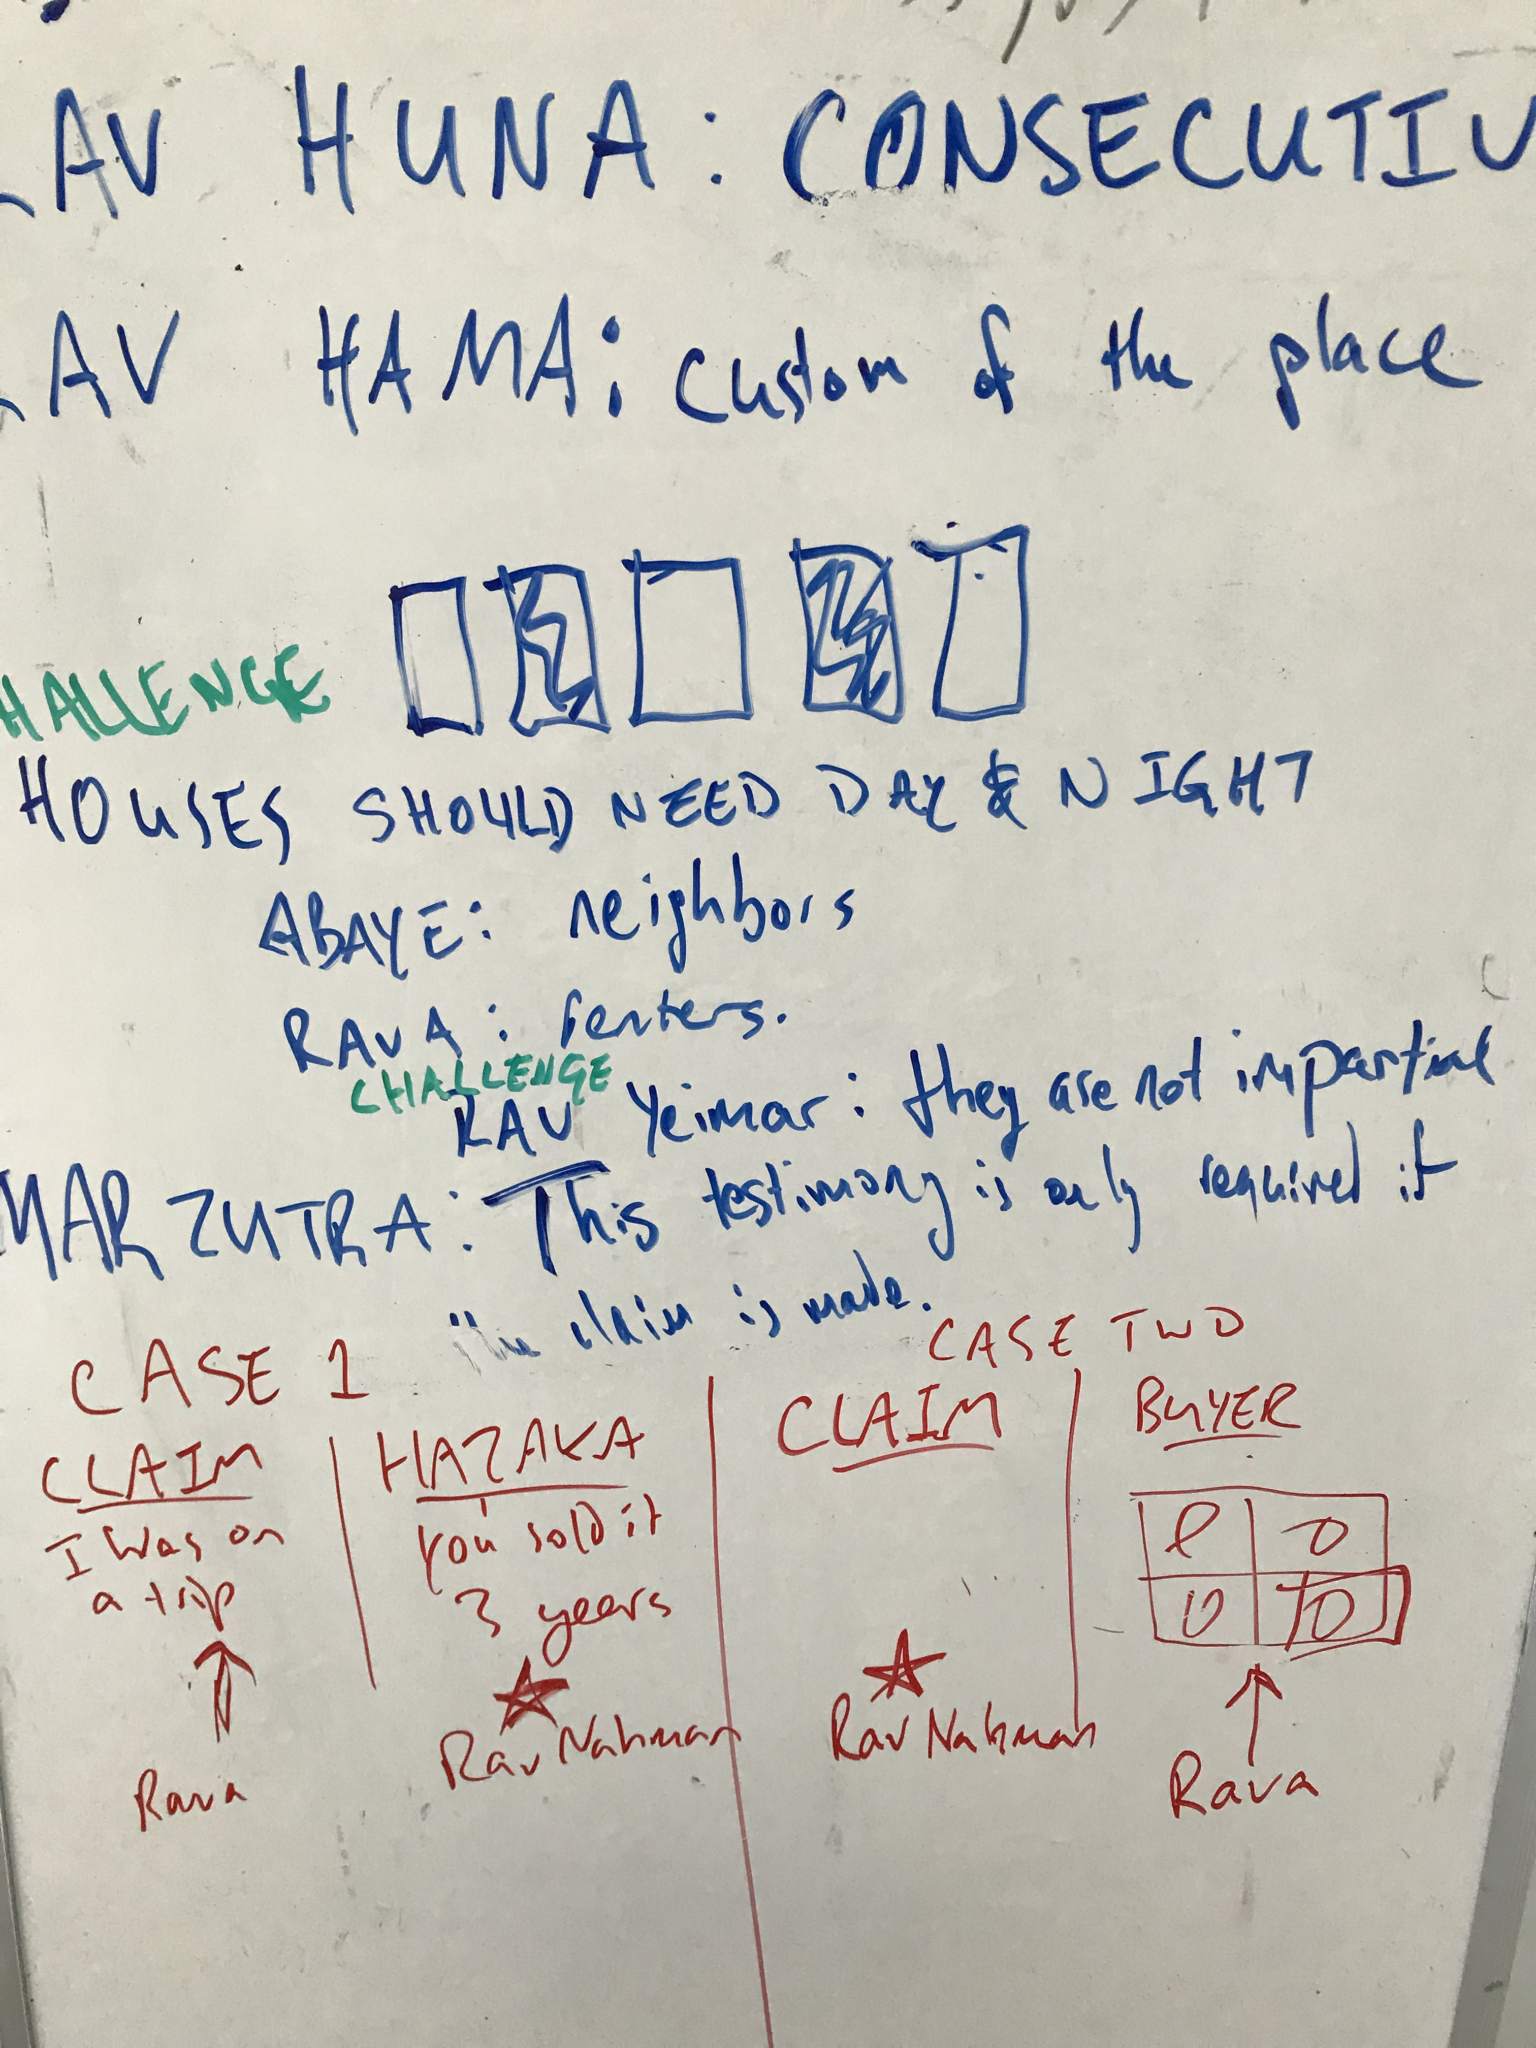 AV HUNA: CONSECUTIV
AV HAMA: custom of the place
HALLENGE
HOUSES SHOULD NEED DAY & NIGHT
ABAYE: neighbors
RAVA: renters.
CHALLENGE
RAV Yeimar: they are not impartial
MAR ZUTRA: This testimony is only required if
the claim is made.
CASE 1
CLAIM
I was on
a trip
Rava
HAZAKA
you sold it
3 years
Rav Nahman
CASE TWO
CLAIM
Rav Nahman
BUYER
Rava